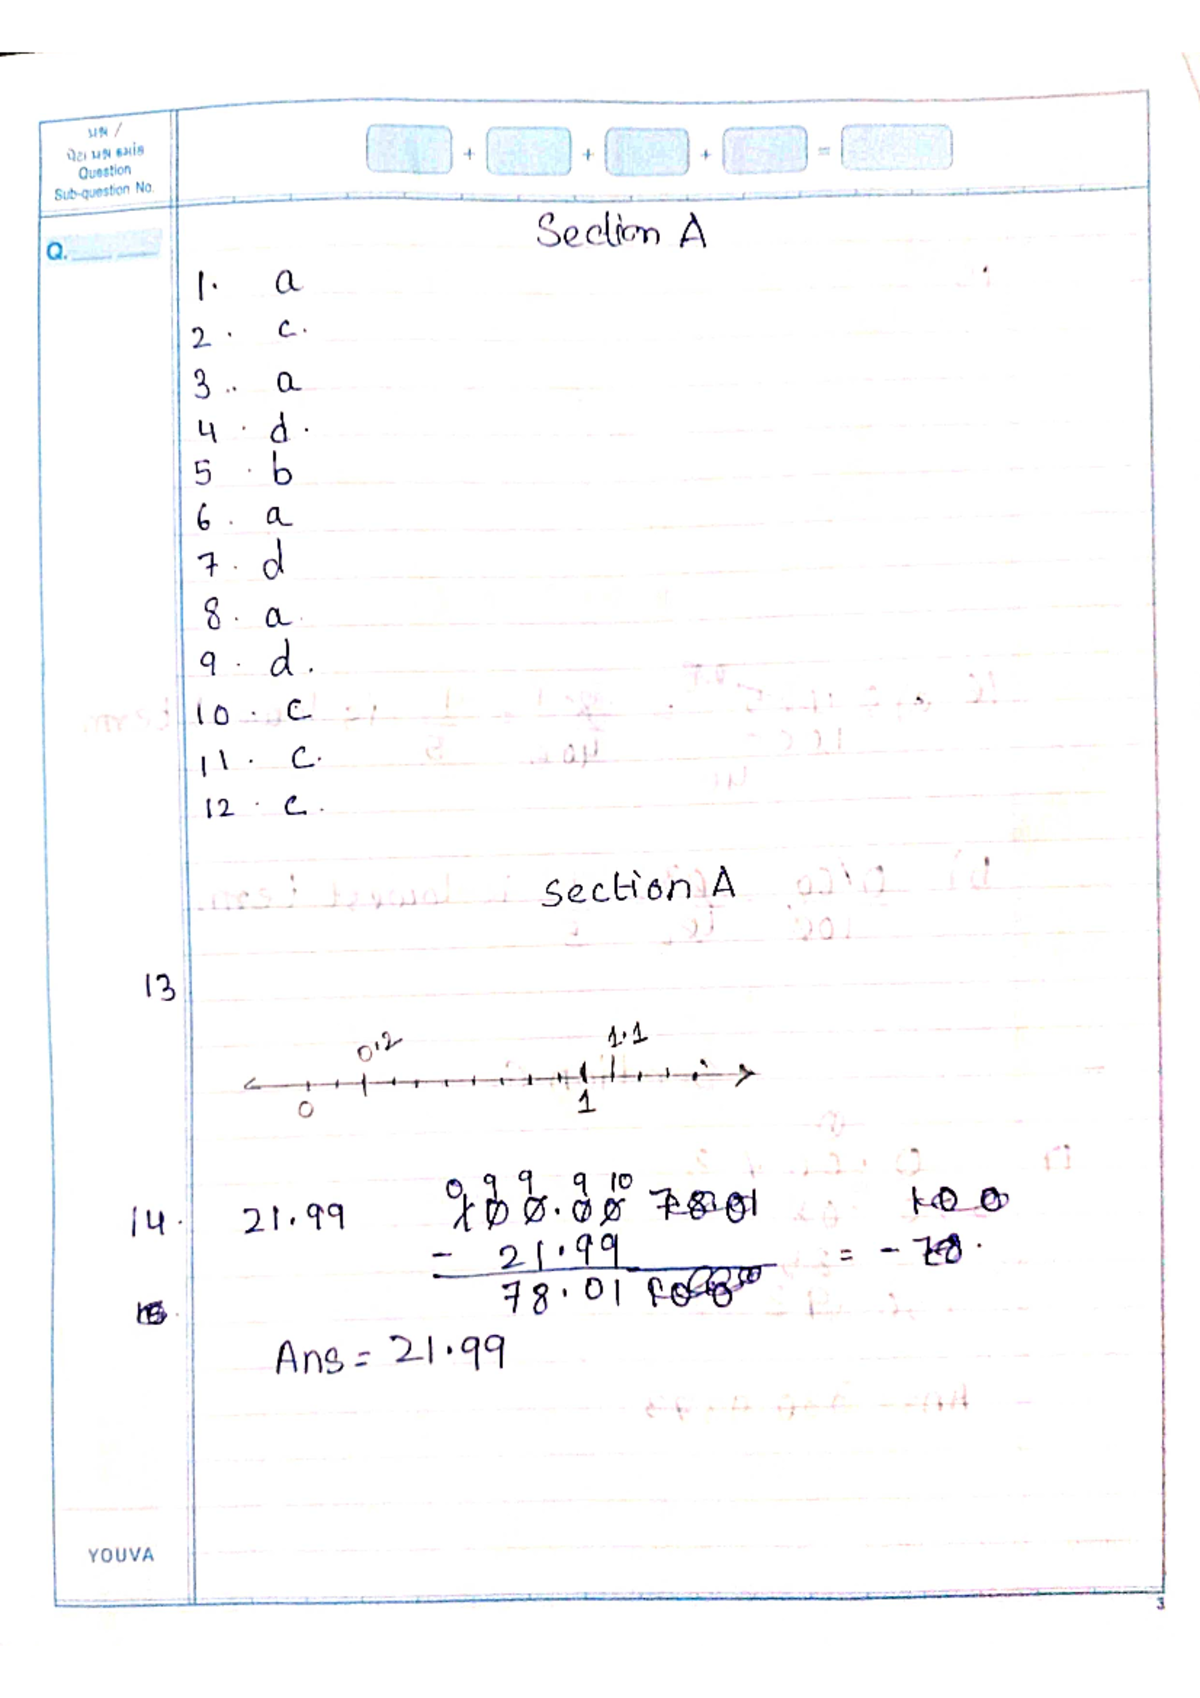 પ્રશ્ન /
પેટા પ્રશ્ન ક્રમાંક
Question
Sub-question No.
+ + + =
Q.
Section A
1. a
2. c.
3.. a
4. d.
5. b
6. a
7. d
8. a.
9. d.
10. c
11. c.
12. c.
Section A
13
0.2 1.1
0 1
0 9 9 9 10
14. 21.99 100.00 7801 100
- 21.99 = - 78.
78.01
15.
Ans = 21.99
YOUVA
3